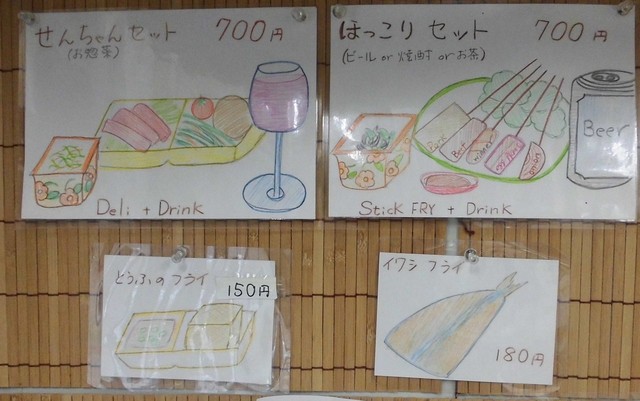 せんちゃん セット 700円
(お惣菜)
Deli + Drink
ほっこり セット 700円
(ビール or 焼酎 or お茶)
Beer
Stick FRY + Drink
とうふの フライ
150円
イワシ フライ
180円